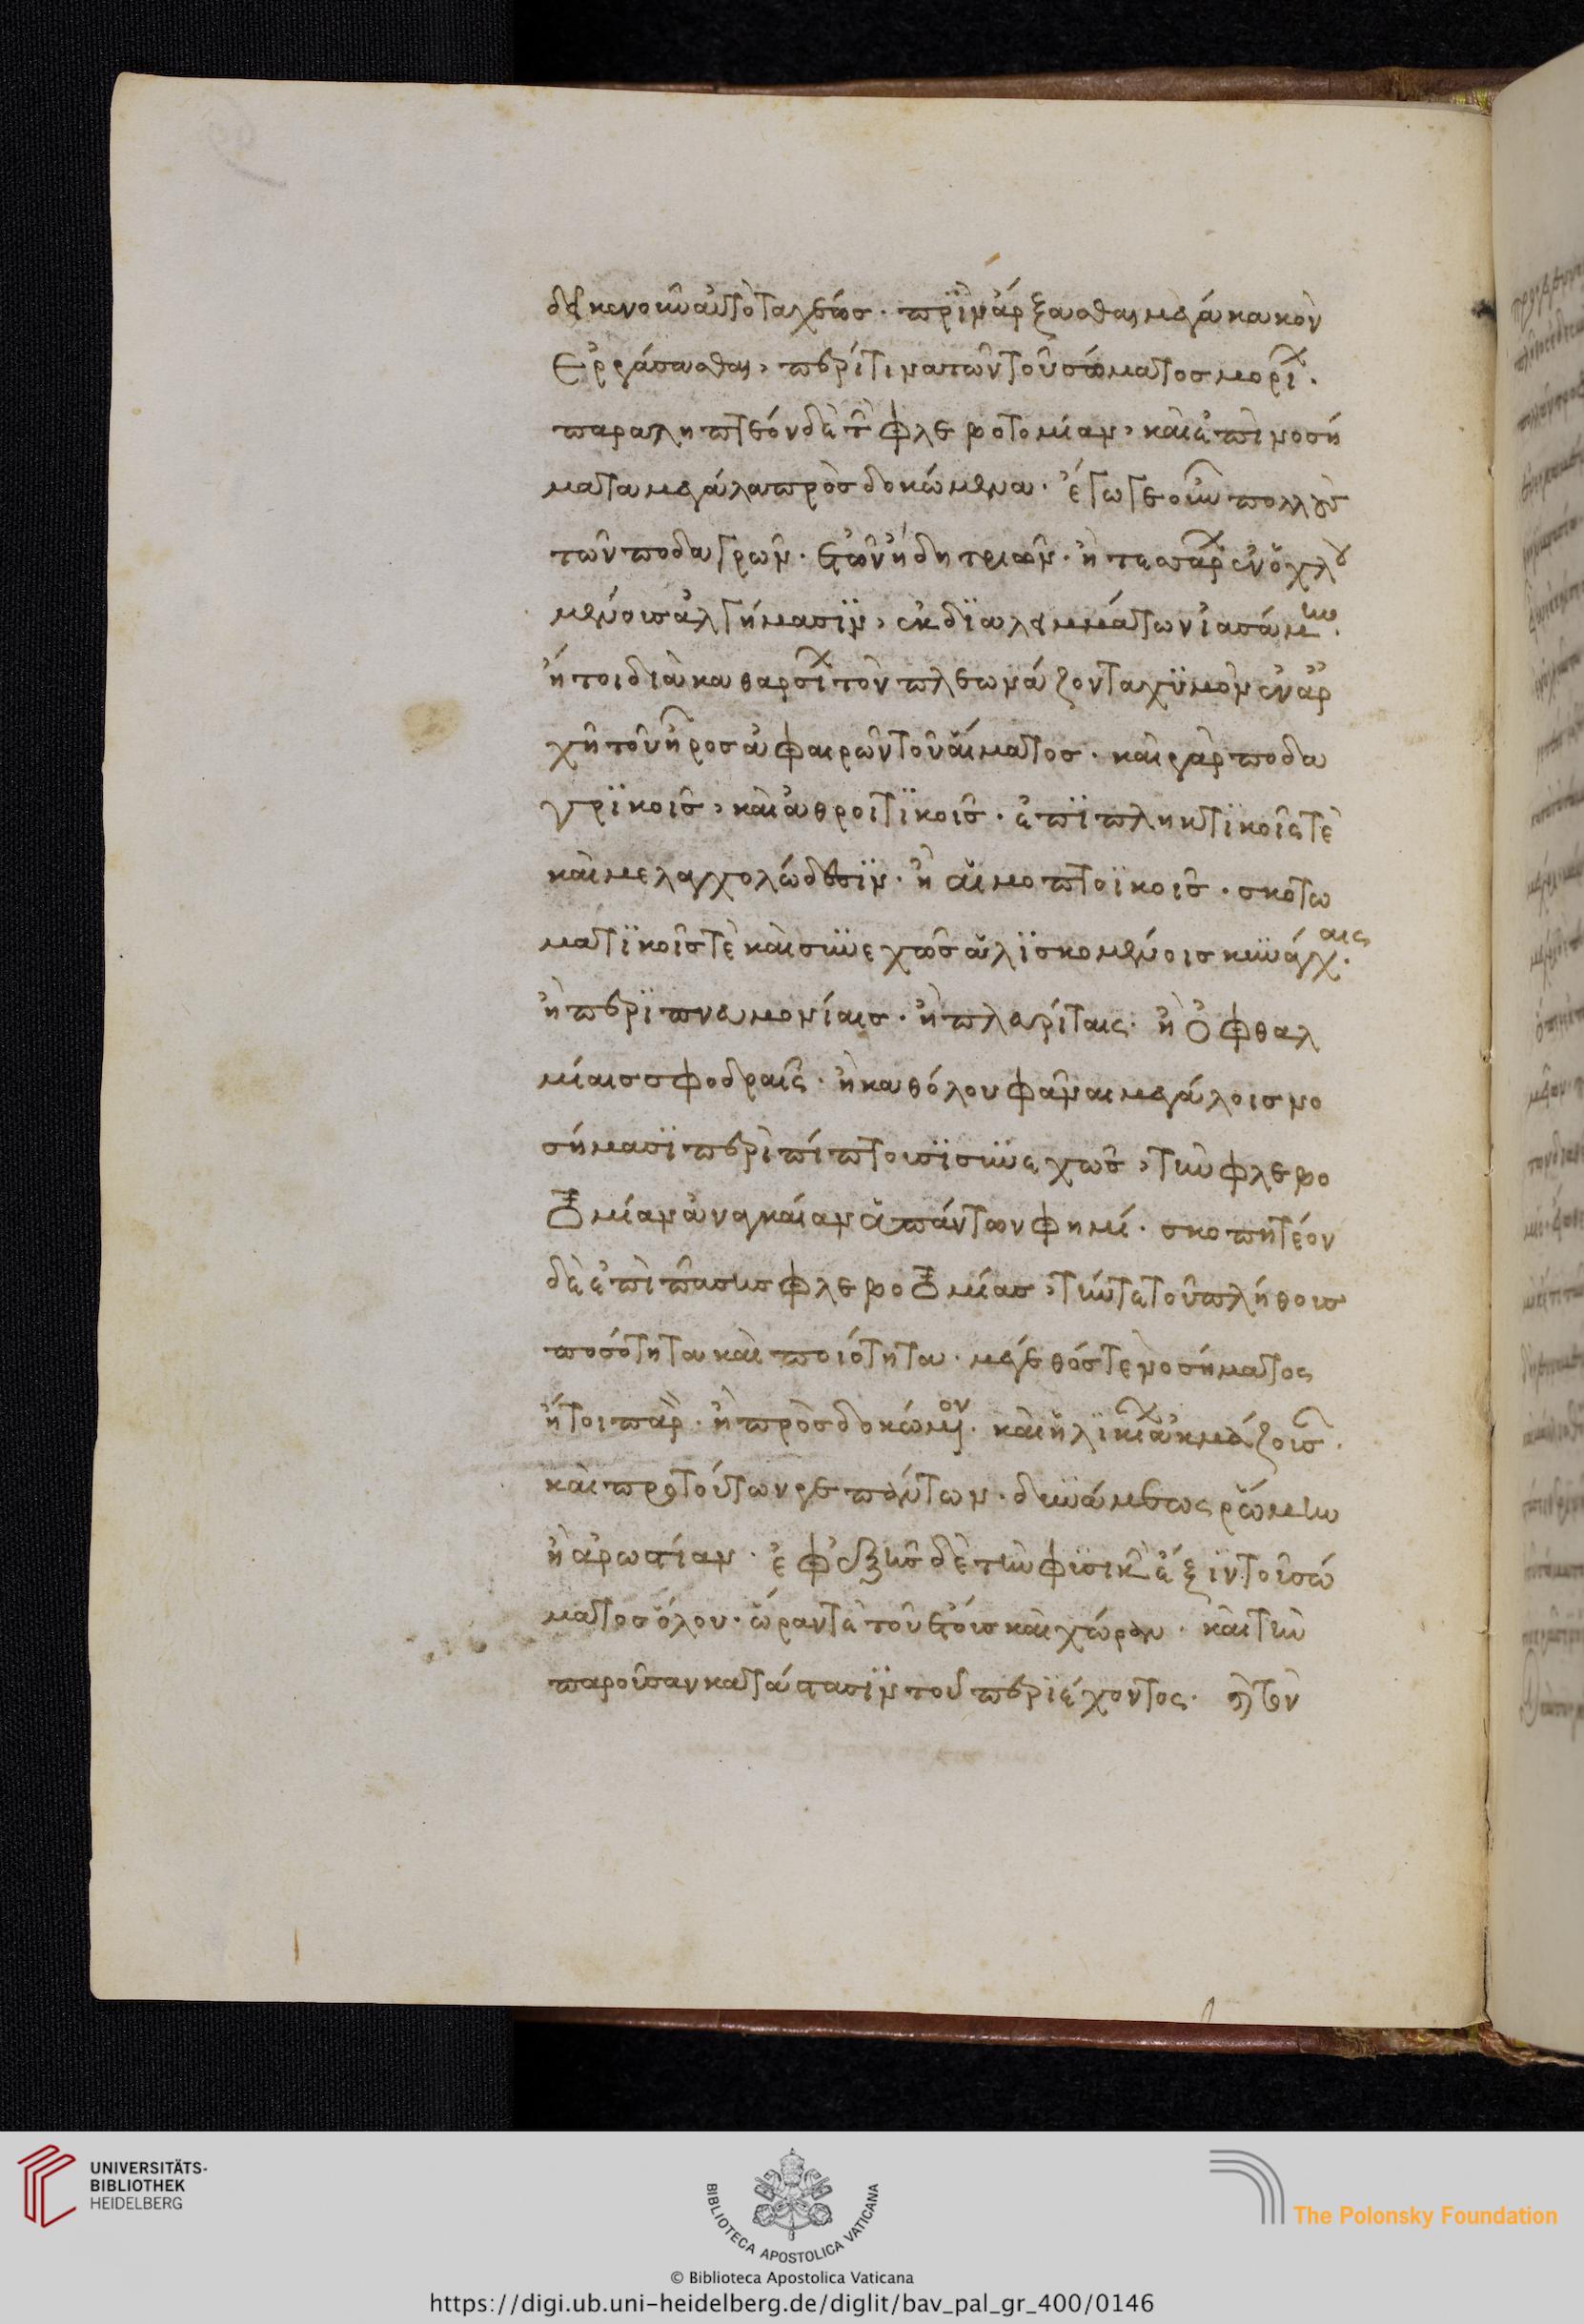 δεῖ κενοῦν αὐτὸ ταχέως · πρῒν ἄρξασθαι μέγα κακὸν
ἐργάσασθαι, περί τινα τῶν τοῦ σώματος μορί ·
παραληπτέον δὲ τ φλεβοτομίαν, καὶ ἐπὶ νοσή
ματα μεγάλα προσδοκώμενα · πολλοὺς
τῶν ποδαγρῶν · ἐτῶν ἤδη τριῶν · ἢ τεσσάρ ἐνοχλου
μένοις ἀλγήμασϊν, ἐκ δϊαλειμμάτων ἰασάμην ·
ἤτοι διὰ καθαρσί τὸν πλεωνάζοντα χϋμὸν ἐν ἀρ
χῇ τοῦ ἦρος ἀφαιρῶν τοῦ αἵματος · καὶ γὰρ ποδα
γρϊκοῖς, καὶ ἀθροιτϊκοῖς · ἐπϊπληκτϊκοῖς τὲ
καὶ μελαγχολώδεσϊν · ἢ αἱμοπτοϊκοῖς · σκοτω
ματϊκοῖς τὲ καὶ συνεχῶς ἁλϊσκομένοις κυνάγχαις ·
ἢ περϊπνευμονίαις · ἢ πλευρίταις · ἢ ὀφθαλ
μίαις σφοδραῖς · ἢ καθόλου φᾶναι μεγάλοις νο
σήμασϊ περιπίπτουσϊ συνεχῶς, τὴν φλεβο
τομίαν ἀναγκαίαν ἁπάντων φημί · σκοπητέον
δὲ ἐπὶ πάσης φλεβοτομίας, τήν τε τοῦ πλήθους
ποσότητα καὶ ποιότητα · μέγεθός τε νοσήματος
ἤτοι παρ · ἢ προσδοκώμενον · καὶ ἡλϊκί ἀκμάζουσ ·
καὶ πρὸ τούτων γε πάντων · δυνάμεως ῥώμην
ἢ ἀρωστίαν · ἐφεξῆς δὲ τὴν φϊσικὴν ἕξϊν τοῦ σώ
ματος ὅλου · ὥραν τὲ τοῦ ἔτους καὶ χώραν · καὶ τὴν
παροῦσαν κατάστασϊν τοῦ περϊέχοντος ·
UNIVERSITÄTS-
BIBLIOTHEK
HEIDELBERG
BIBLIOTECA APOSTOLICA VATICANA
The Polonsky Foundation
© Biblioteca Apostolica Vaticana
https://digi.ub.uni-heidelberg.de/diglit/bav_pal_gr_400/0146